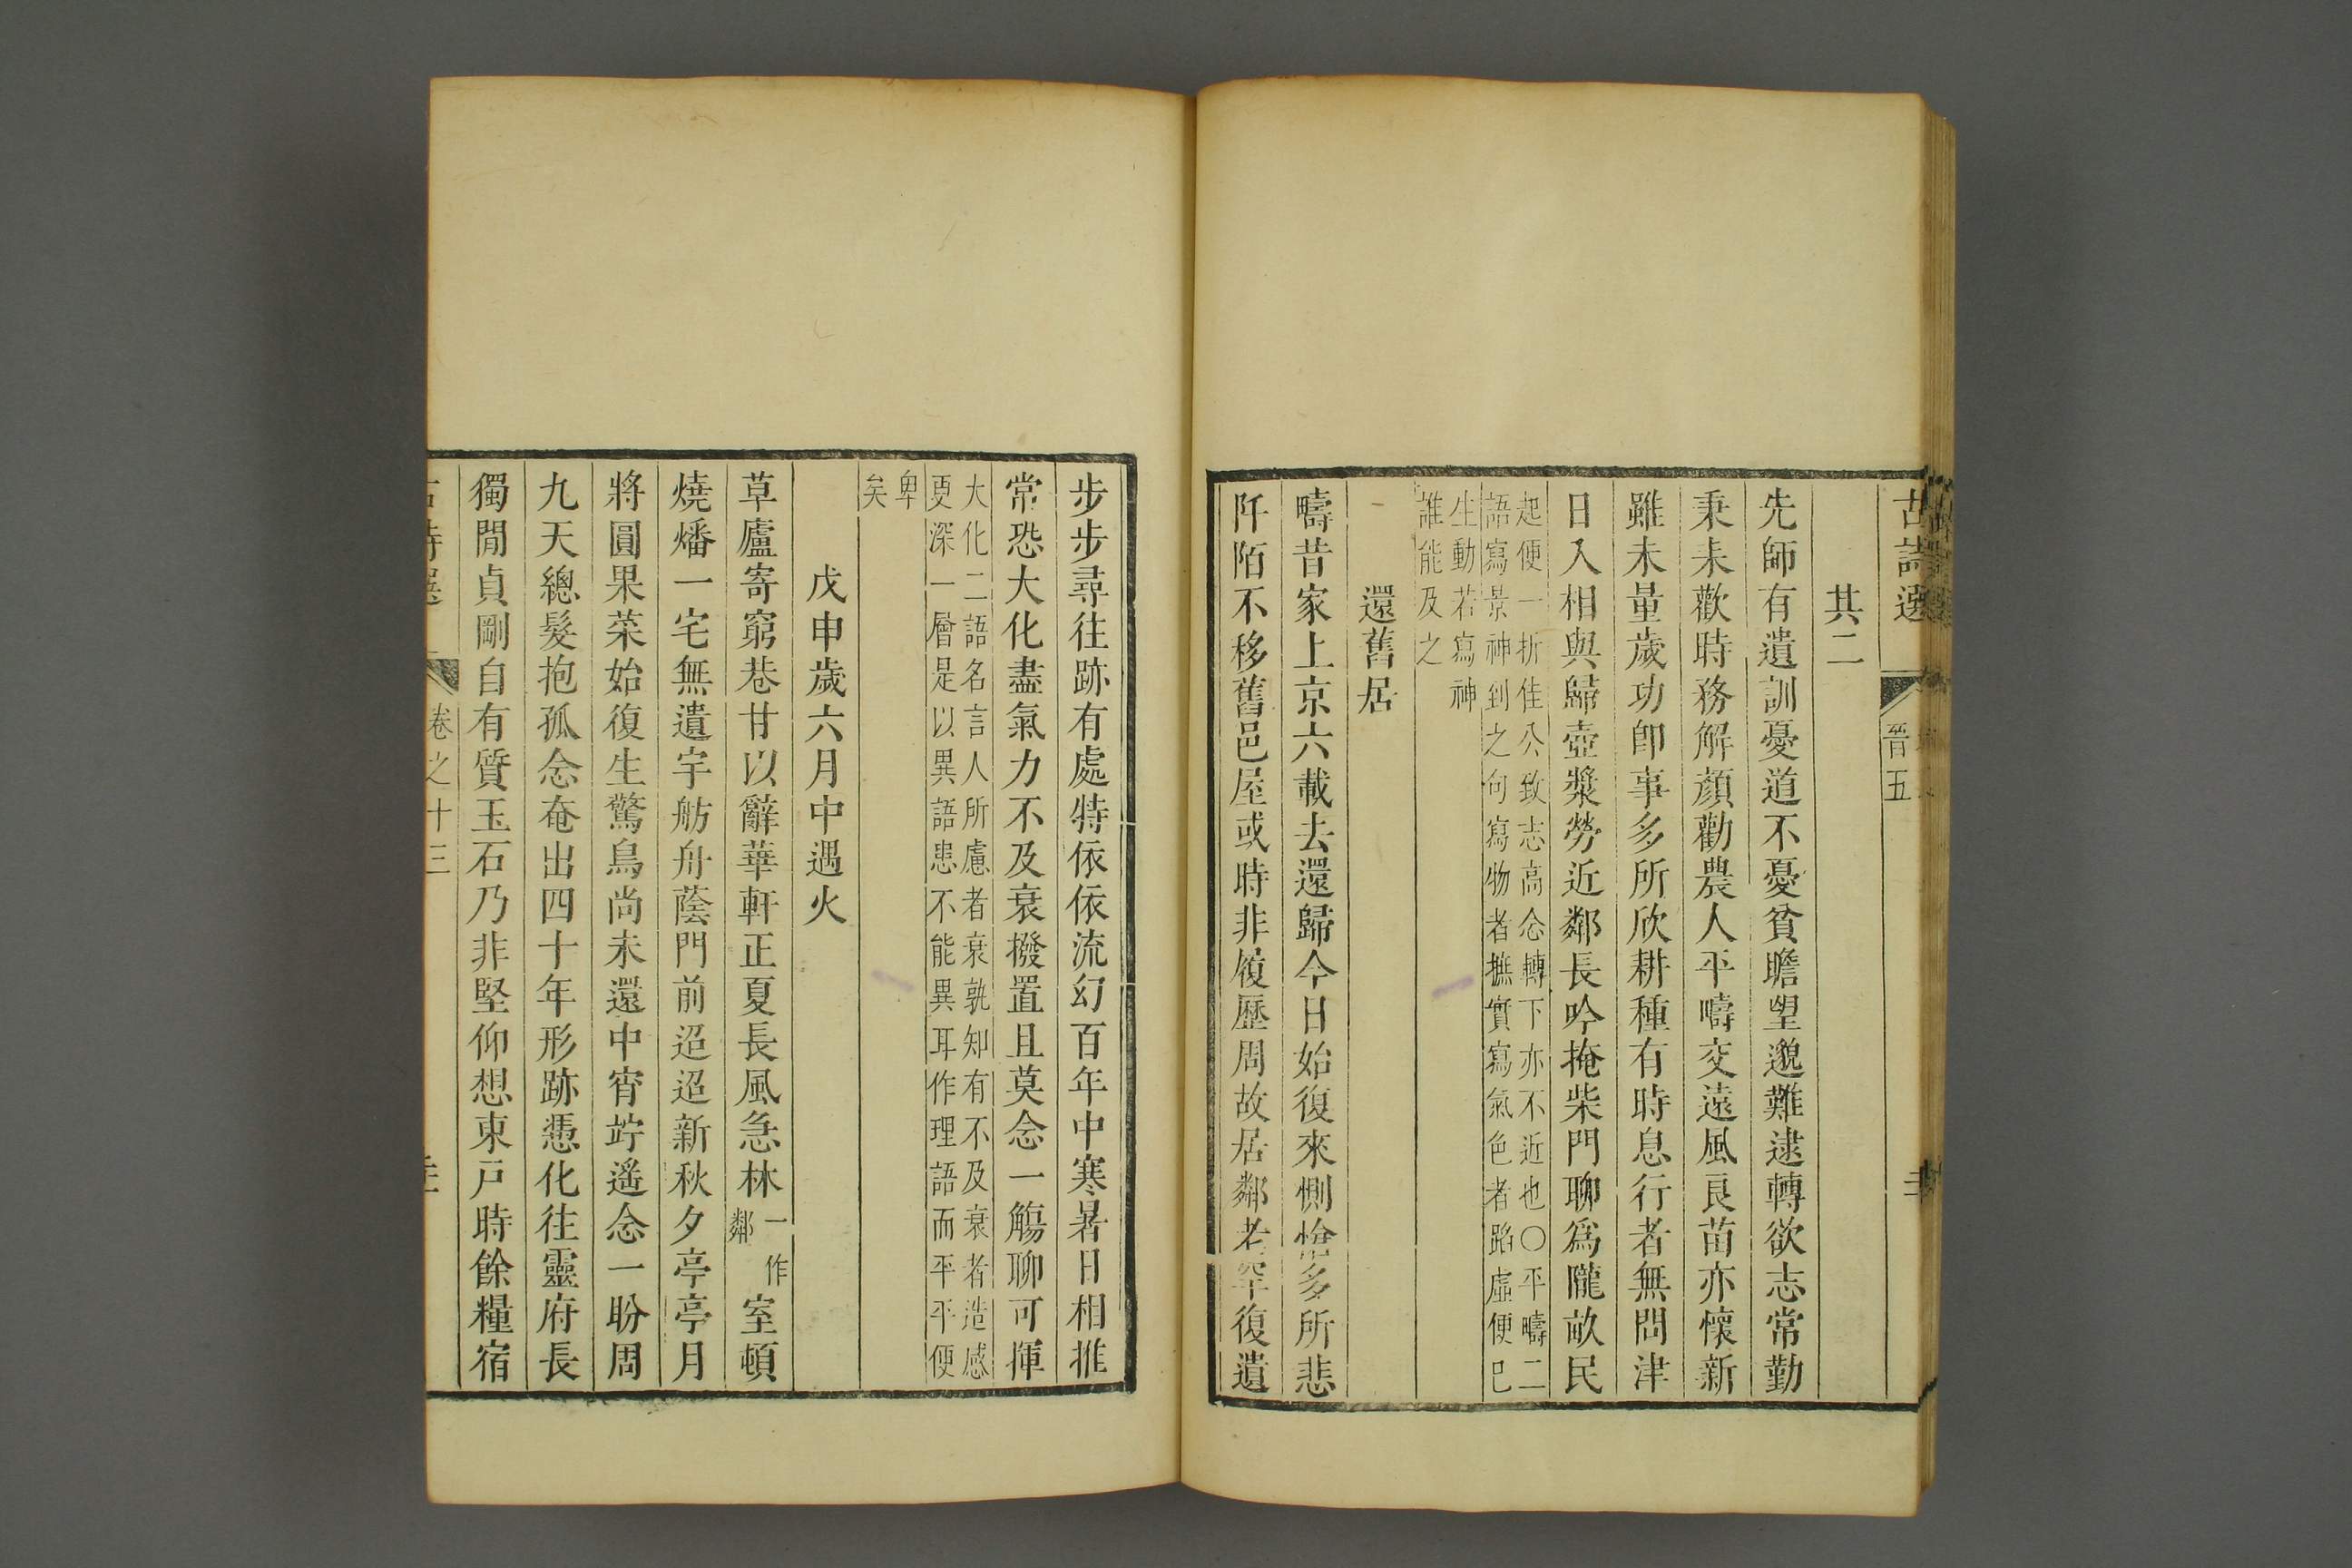 古詩選
晉五
其二
先師有遺訓憂道不憂貧瞻望邈難逮轉欲志常勤
秉耒歡時務解顏勸農人平疇交遠風良苗亦懷新
雖未量歲功即事多所欣耕種有時息行者無問津
日入相與歸壺漿勞近鄰長吟掩柴門聊爲隴畝民
起便一折佳公致志高念轉下亦不近也○平疇二
語寫景神到之句寫物者摭實寫氣色者蹈虛便已
生動若寫神
誰能及之
還舊居
疇昔家上京六載去還歸今日始復來惻愴多所悲
阡陌不移舊邑屋或時非履歷周故居鄰老罕復遺
步步尋往跡有處特依依流幻百年中寒暑日相推
常恐大化盡氣力不及衰撥置且莫念一觴聊可揮
大化二語名言人所慮者衰孰知有不及衰者造感
更深一層是以異語患不能異耳作理語而平平便
卑
矣
戊申歲六月中遇火
草廬寄窮巷甘以辭華軒正夏長風急林一作鄰室頓
燒燔一宅無遺宇舫舟蔭門前迢迢新秋夕亭亭月
將圓果菜始復生驚鳥尚未還中宵竚遙念一盼周
九天總髮抱孤念奄出四十年形跡憑化往靈府長
獨閒貞剛自有質玉石乃非堅仰想東戸時餘糧宿
古詩選
卷之十三